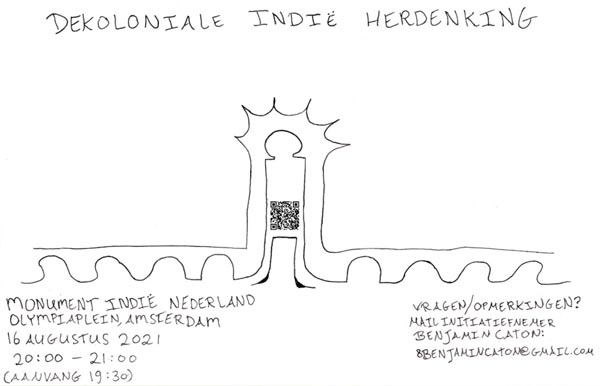 DEKOLONIALE INDIË HERDENKING
MONUMENT INDIË NEDERLAND
OLYMPIAPLEIN, AMSTERDAM
16 AUGUSTUS 2021
20:00 - 21:00
(AANVANG 19:30)
VRAGEN/OPMERKINGEN?
MAIL INITIATIEFNEMER
BENJAMIN CATON:
8BENJAMINCATON@GMAIL.COM